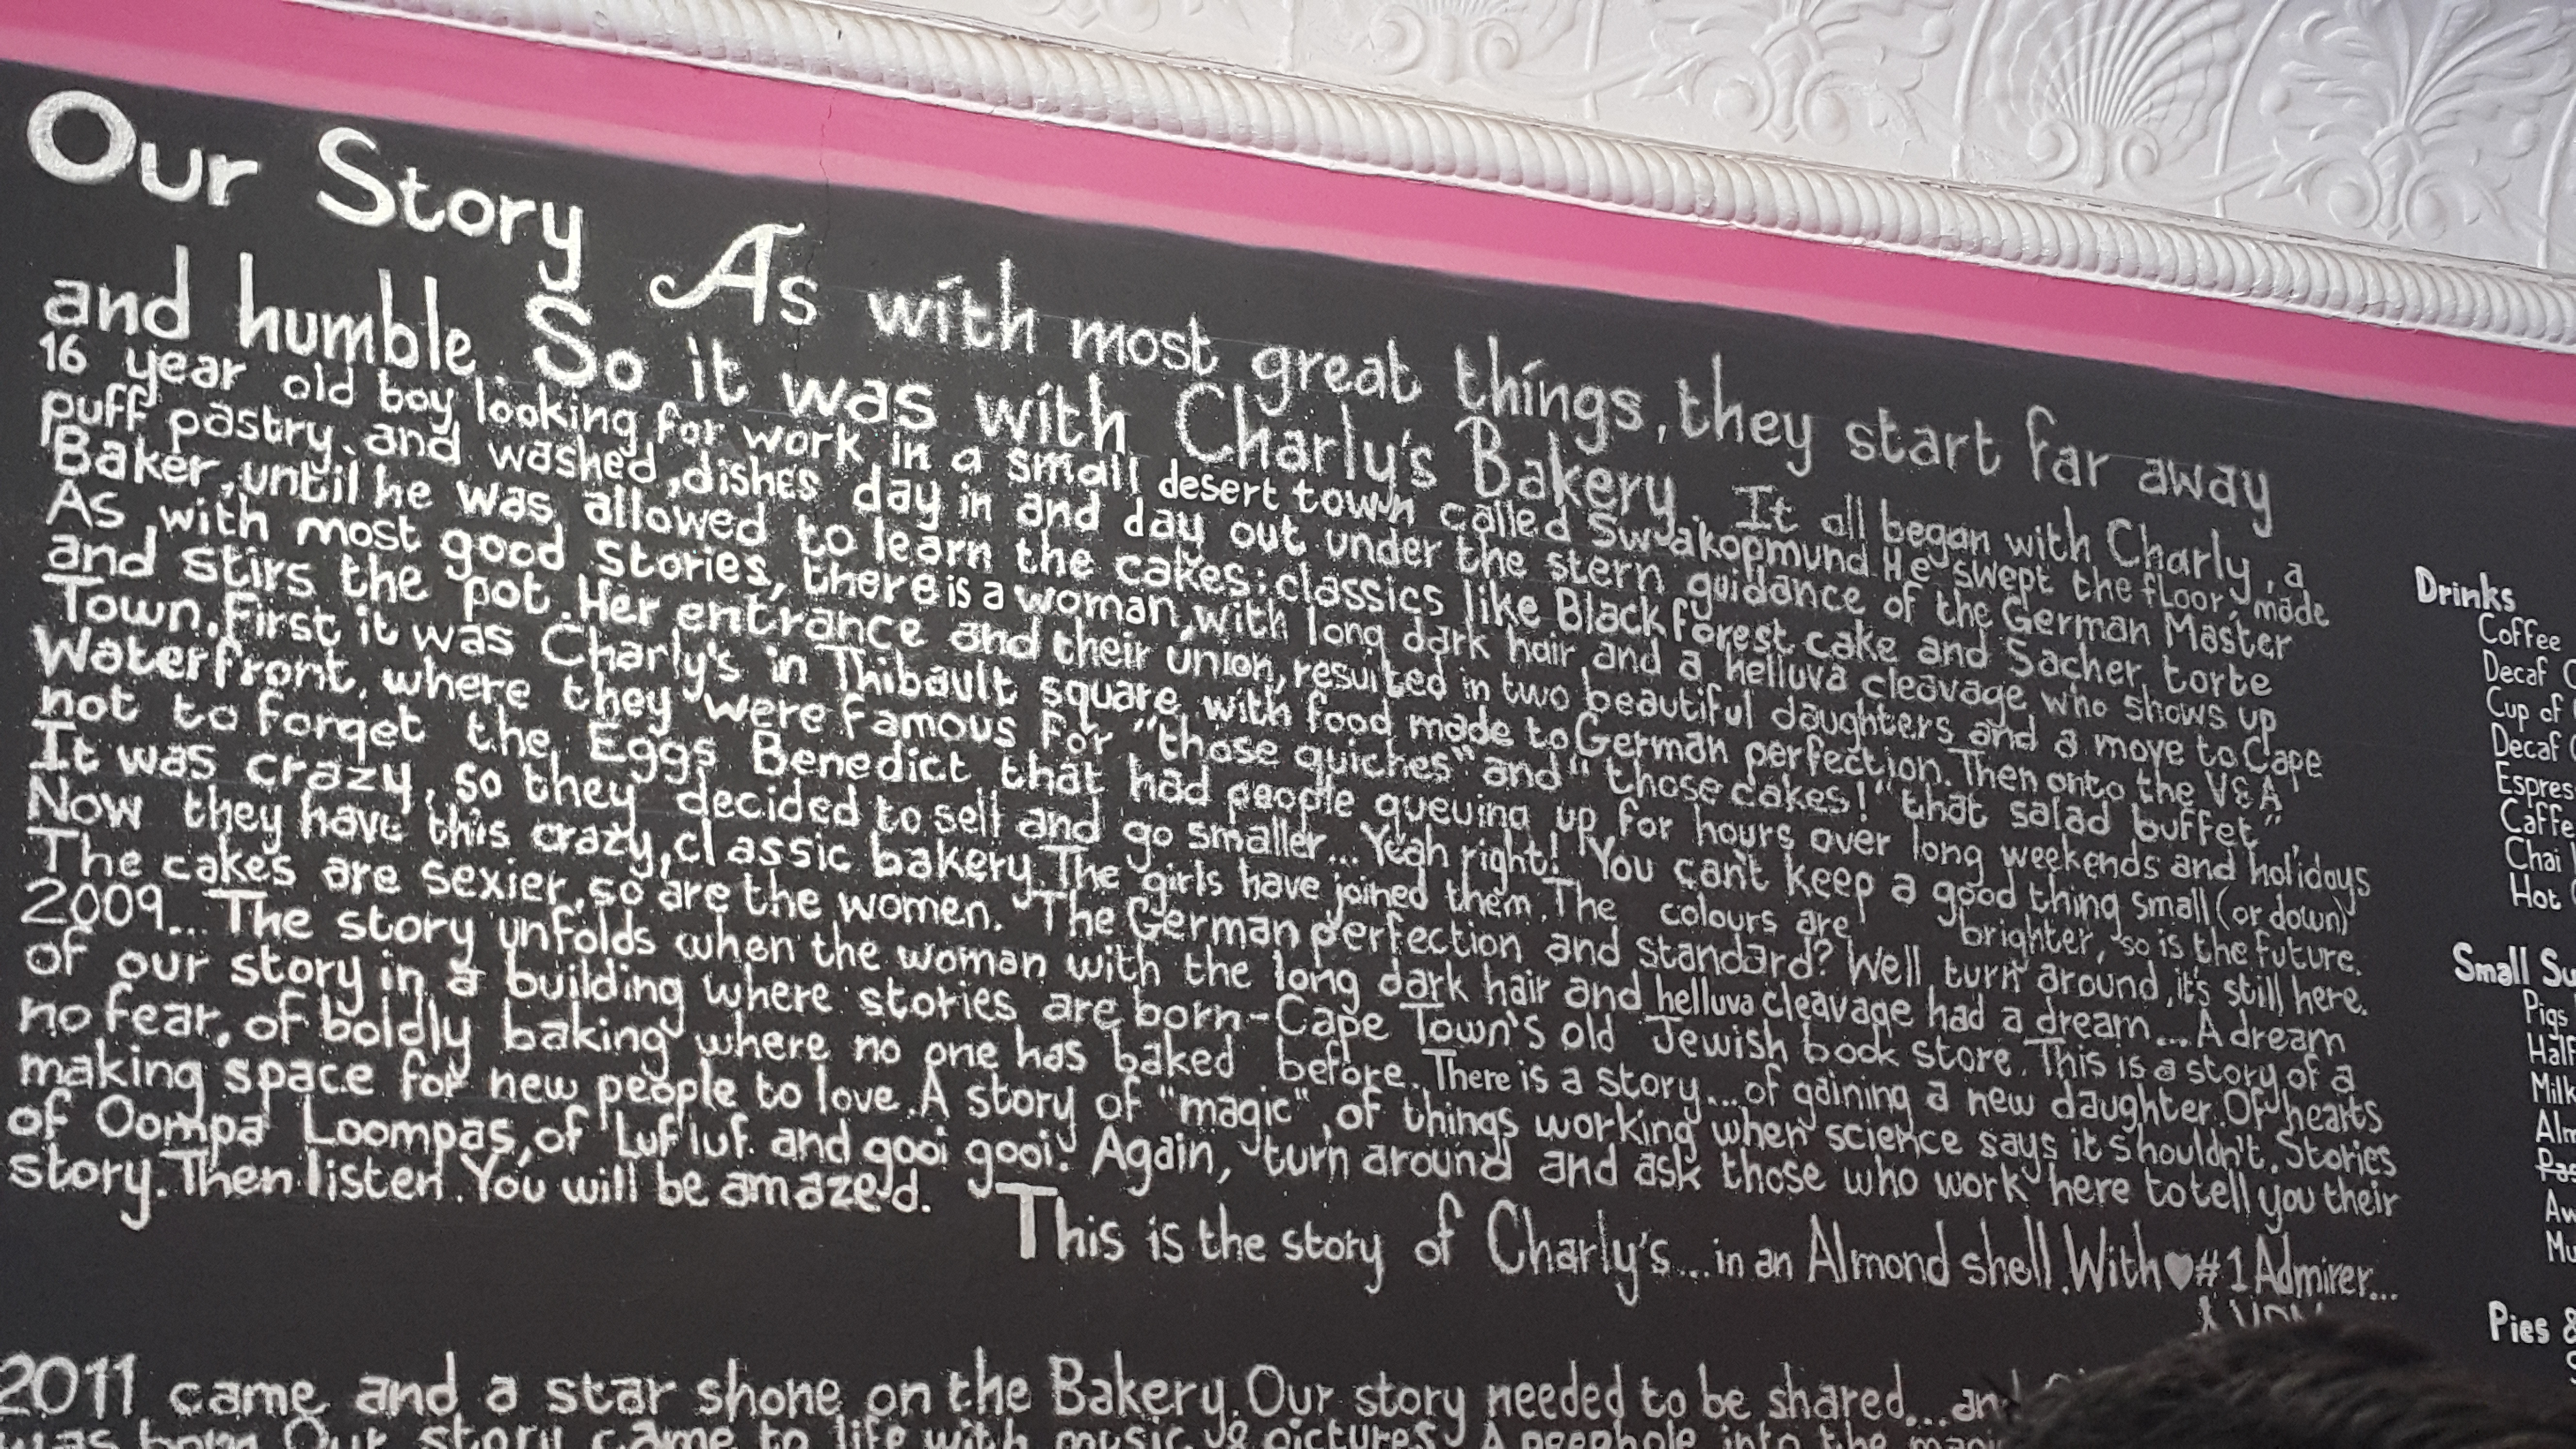 Our Story As with most great things, they start far away
and humble. So it was with Charly's Bakery. It all began with Charly, a
16 year old boy looking for work in a small desert town called Swakopmund. He swept the floor, made
puff pastry, and washed dishes day in and day out under the stern guidance of the German Master
Baker, until he was allowed to learn the cakes; classics like Black forest cake and Sacher torte
As with most good stories, there is a woman, with long dark hair and a helluva cleavage who shows up
and stirs the pot. Her entrance and their union, resulted in two beautiful daughters and a move to Cape
Town. First it was Charly's in Thibault square with food made to German perfection. Then onto the V&A
Waterfront, where they were famous for "those quiches" and "those cakes!" "that salad buffet",
not to forget the Eggs Benedict that had people queuing up for hours over long weekends and holidays
It was crazy, so they decided to sell and go smaller... Yeah right! You can't keep a good thing small (or down)
Now they have this crazy, classic bakery. The girls have joined them. The colours are brighter, so is the future.
The cakes are sexier, so are the women. The German perfection and standard? Well turn around, it's still here.
2009... The story unfolds when the woman with the long dark hair and helluva cleavage had a dream... A dream
of our story in a building where stories are born - Cape Town's old Jewish book store. This is a story of a
no fear, of boldly baking where no one has baked before. There is a story... of gaining a new daughter. Of hearts
making space for new people to love. A story of "magic", of things working when science says it shouldn't. Stories
of Oompa Loompas, of Luf luf. and gooi gooi! Again, turn around and ask those who work here to tell you their
story. Then listen. You will be amazed.
This is the story of Charly's... in an Almond shell. With ♥ #1 Admirer...
2011 came and a star shone on the Bakery. Our story needed to be shared... and
was born Our story came to life with music & pictures. A peephole into the
Drinks
Coffee
Decaf
Cup of
Decaf
Chai
Hot
Small
Pigs
Half
Pies &